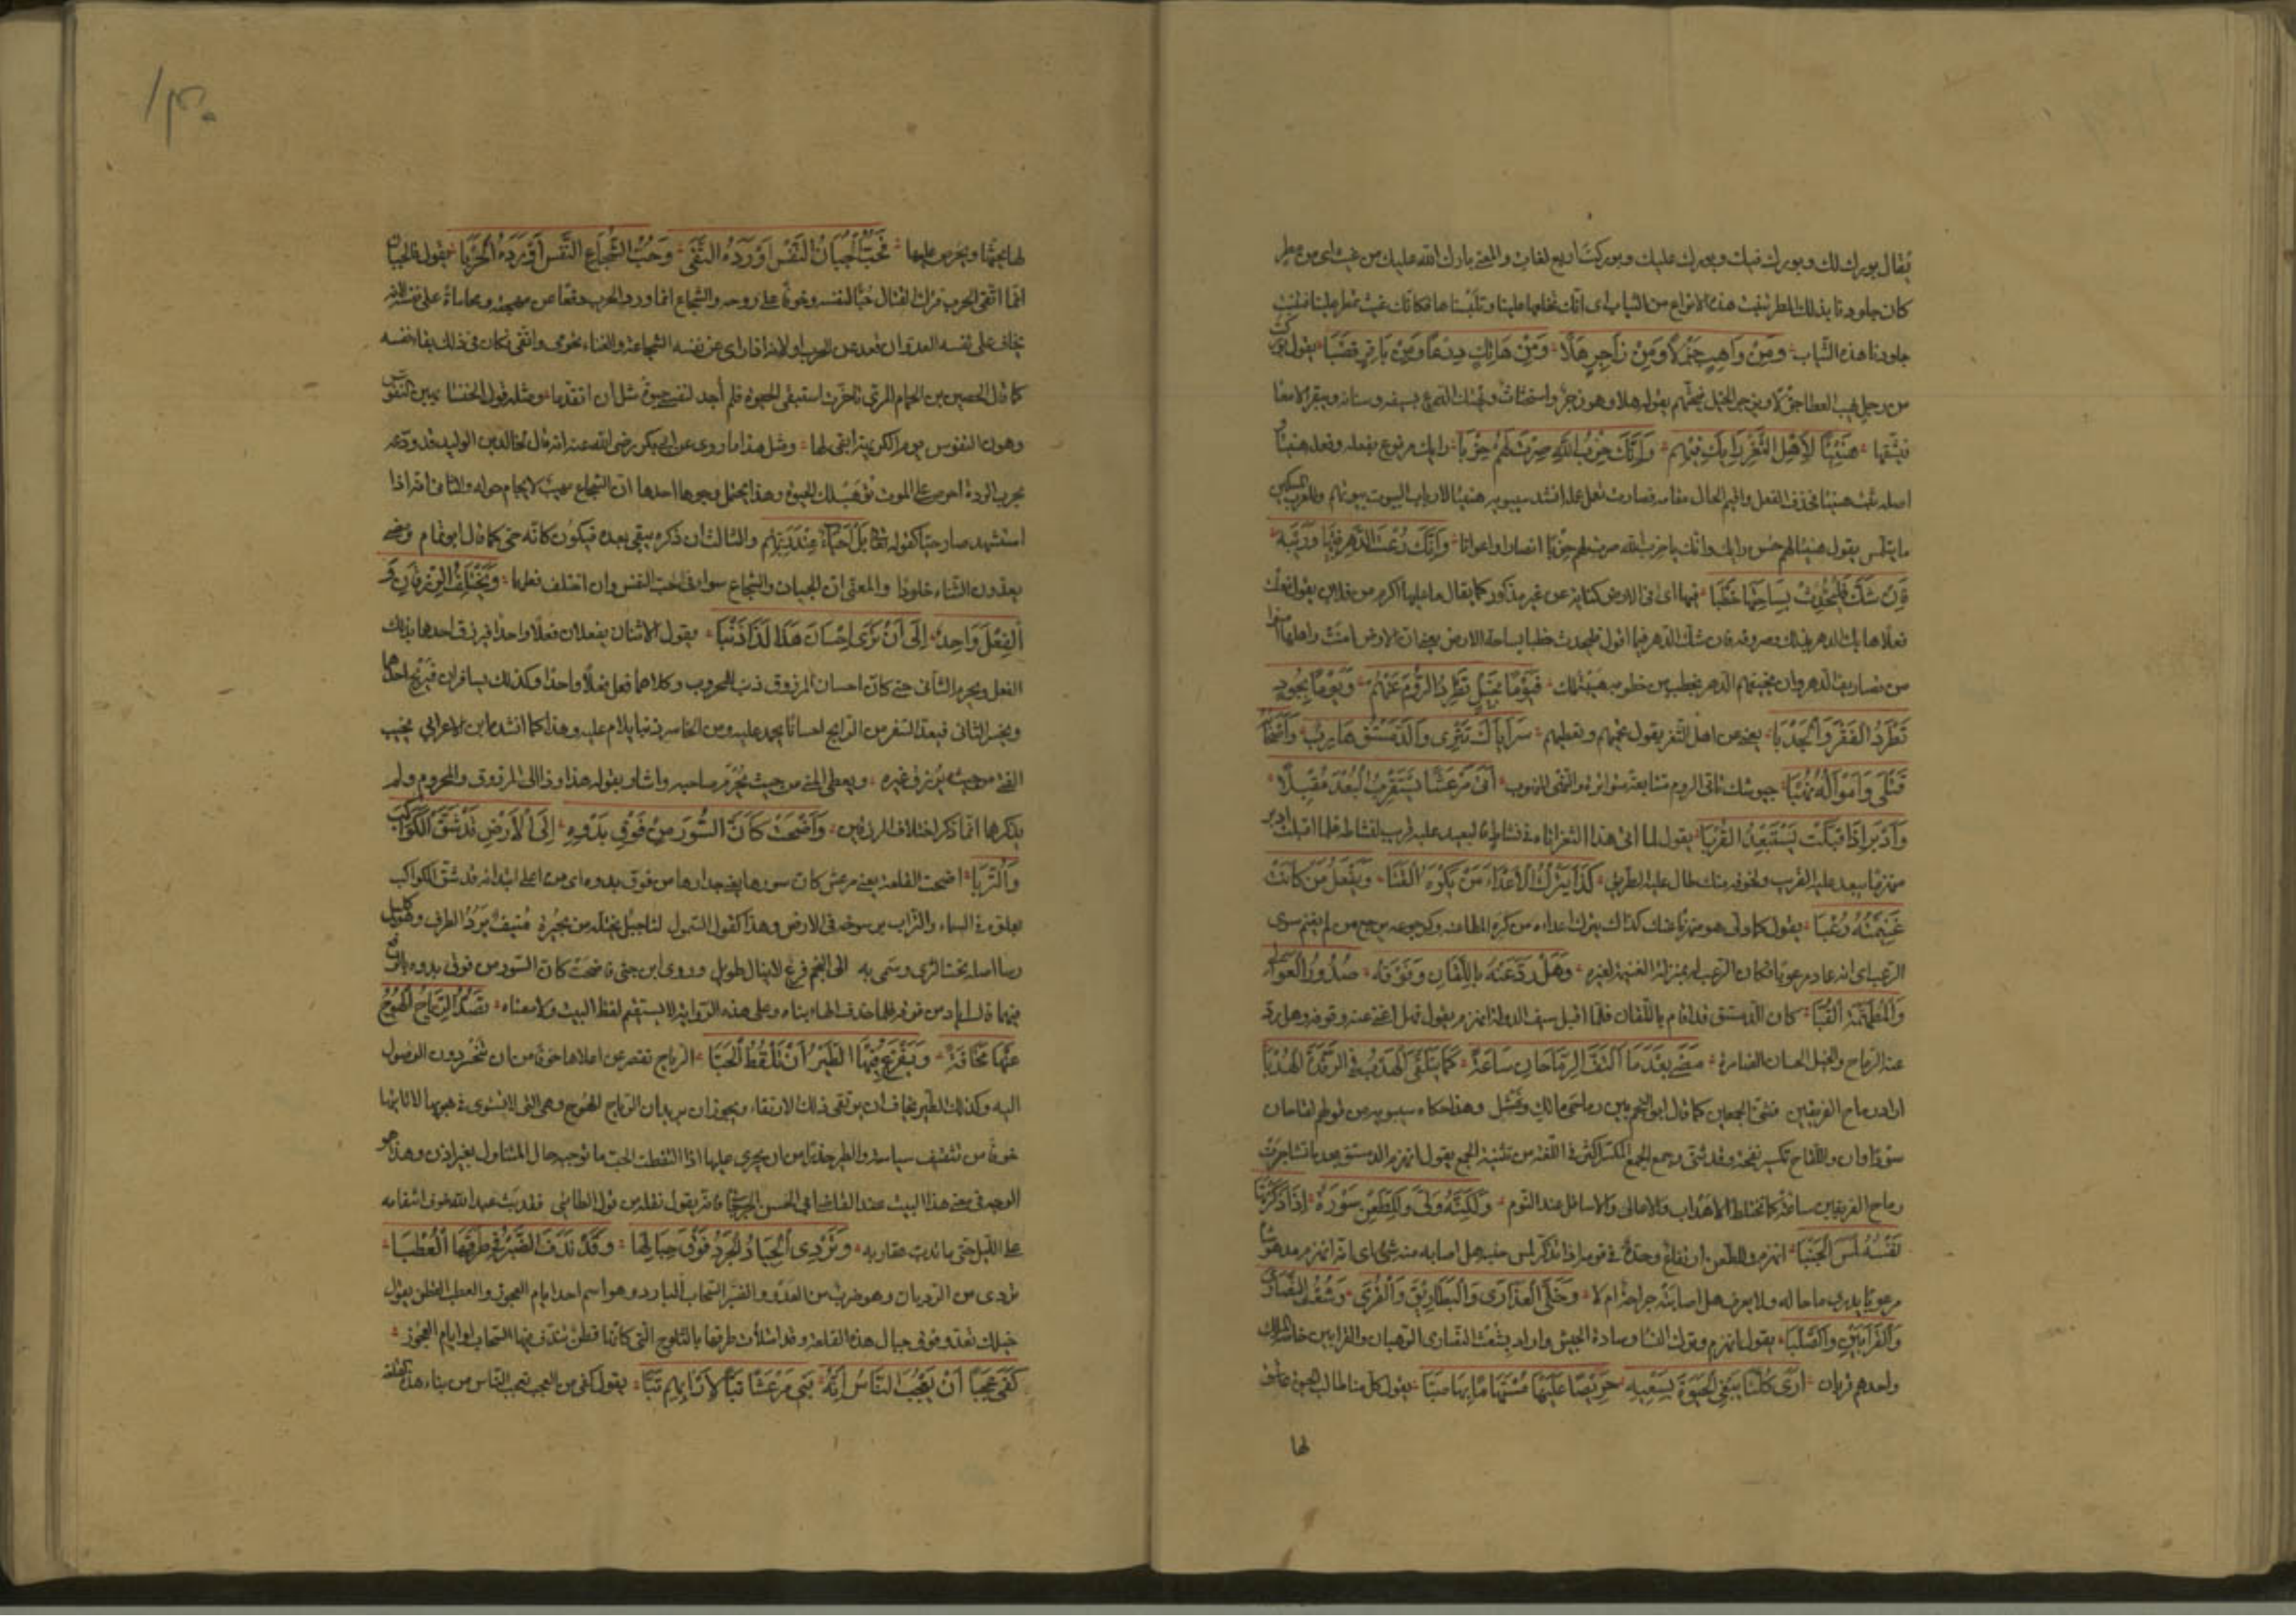 يقال بورك لك وبورك فيك وبورك عليك وبوركت اربع لغات والمعنى بارك الله عليك من غيث اى من مطر
كان جلودنا بذلك المطر تنبت هذه الانواع من الثياب اى انك تخلعها علينا وتلبسناها فكانك غيث تمطر علينا فتنبت
جلودنا هذه الثياب ومن واهب جزلا ومن زاجر هلا ومن هاتك درعا ومن باتر قصبا يقول بوركت
من رجل يهب العطا جزلا ويزجر الخيل بقوله هلا وهو زجر واستحثاث ويهتك الدرع بسيفه وسنانه ويبتر الامعا
فيشقها هنيئا لاهل الثغر رايك فيهم وانك حزب الله صرت لهم حزبا رايك مرفوع بفعله وفعله هنيئا
اصله ثبت هنيئا فحذف الفعل واقيم الحال مقامه فصارت تعمل عمله انشد سيبويه هنيئا لارباب البيوت بيوتهم وللعزب المسكين
ما يتلمس يقول هنيئا لهم حسن رايك وانك يا حزب الله صرت لهم حزبا انصارا واعوانا وانك رعت الدهر فيها وريبه
فان شك فليحدث بساحتها خطبا فيها اى فى الارض كناية عن غير مذكور كما يقال ما عليها اكرم من فلان يقول فعلت
فعلا هابك الدهر فيه وصروفه فان شك الدهر فيما اقول فليحدث خطبا بساحة الارض يعنى ان الارض امنت واهلها
من تصاريف الدهر وان يخيفهم الدهر بخطب من خطوبه هيبة لك فيوما بخيل تطرد الروم عنهم ويوما بجود
تطرد الفقر والجدبا يعنى عن اهل الثغر يقول تحميهم وتعطيهم سراياك تترى والدمستق هارب واصحابه
قتلى وامواله نهبا جيوشك تاتى الروم متتابعة متواترة والنهبى المنهوب اتى مرعشا يستقرب البعد مقبلا
وادبر اذ اقبلت يستبعد القربا يقول لما اتى هذا الثغر اتاه فى نشاطه فالبعيد عليه قريب لنشاطه فلما اقبلت ادبر
منهزما يبعد عليه القريب ولخوفه منك طال عليه الطريق كذا يترك الاعداء من يكره القنا ويقفل من كانت
غنيمته رعبا يقول كما ولى هو منهزما عنك كذلك يترك اعداءه من كره المطاعنة وكرجوعه يرجع من لم يغنم سوى
الرعب اى انه عاد مرعوبا فكان الرعب له بمنزلة الغنيمة لغيره وهل رد عنه باللقان وقوفه صدور العوالى
والمطهمة القبا كان الدمستق قد اقام باللقان فلما اقبل سيف الدولة انهزم يقول هل اغنى عنه وقوفه وهل رد
عنه الرماح والخيل الحسان الضامرة مضى بعد ما التف الرماحان ساعة كما يتلقى الهدب فى الرقدة الهدبا
اراد رماح الفريقين فثنى الجمعين كما قال ابو النجم بين رماحى مالك ونهشل وهذا حكاه سيبويه من قولهم لقاحان
سوداوان واللقاح تكسير لقحة وقد ثنى وجمع الجمع المكسر اكثر فى اللغة من تثنية الجمع يقول انهزم الدمستق بعد ما تشاجرت
رماح الفريقين ساعة كما تختلط الاهداب والاعالى والاسافل عند النوم ولكنه ولى وللطعن سورة اذا ذكرتها
نفسه لمس الجنبا انهزم وللطعن ارتفاع وحدة فى قومه اذا تذكر لمس جنبه هل اصابه منه شى اى انه انهزم مدهوشا
مرعوبا يدرى ما حاله ولا يعرف هل اصابته جراحة ام لا وخلى العذارى والبطاريق والقرى وشعث النصارى
والقرابين والصلبا يقول انهزم وترك النسا وسادة الجيش واراد بشعث النصارى الرهبان والقرابين خاصة الملك
واحدهم قربان ارى كلنا يبغى الحيوة بسعيه حريصا عليها مستهاما بها صبا يقول كل منا طالب الحيوة عاشق
لها
١٣٠
لها يحبها ويحرص عليها فحب الجبان النفس اورده التقى وحب الشجاع النفس اورده الحربا يقول فالجبان
انما اتقى الحرب فترك القتال حبا لنفسه وخوفا على روحه والشجاع انما ورد الحرب دفعا عن مهجته ومحاماة على نفسه لانه
يخاف على نفسه العدو ان قعد عن الحرب او لانه اذا راى من نفسه الشجاعة والغناء تحومى واتقى فكان فى ذلك بقا نفسه
كما قال الحصين بن الحمام المرى تاخرت استبقى الحيوة فلم أجد لنفسى حيوة مثل ان اتقدما ومثله قول الخنسا نهين النفوس
وهون النفوس يوم الكريهة ابقى لها ومثل هذا ما روى عن ابى بكر رضى الله عنه انه قال لخالد بن الوليد وقد ودعه
لحرب الردة احرص على الموت توهب لك الحيوة وهذا يحتمل وجوها احدها ان الشجاع مهيب لا يحام حوله والثانى انه اذا
استشهد صار حيا كقوله تعالى بل احياء عند ربهم والثالث ان ذكره يبقى بعده فيكون كانه حى كما قال ابو تمام ومضوا
يعدون الثناء خلودا والمعنى ان الجبان والشجاع سواء فى حب النفس وان اختلف فعلهما ويختلف الرزقان و
الفعل واحد الى ان ترى احسان هذا لذا ذنبا يقول الاثنان يفعلان فعلا واحدا فيرزق احدهما بذلك
الفعل ويحرم الثانى حتى كان احسان المرزوق ذنب للمحروم وكلاهما فعل فعلا واحدا وكذلك يسافران فيربح احدهما
ويخسر الثانى فيعد السفر من الرابح احسانا يحمد عليه ومن الخاسر ذنبا يلام عليه وهذا كما انشد ابن الاعرابى يخيب
الفتى من حيث يرزق غيره ويعطى المنى من حيث يحرم صاحبه واشار بقوله هذا وذا الى المرزوق والمحروم ولم
يذكرهما انما ذكر اختلاف الرزقين واضحت كان السور من فوق بدوه الى الارض قد شق الكواكب
والتربا اضحت القلعة يعنى مرعش كان سورها يعنى جدارها من فوق بدوه اى من اعلى ابتدائه قد شق الكواكب
بعلوه فى السماء والتراب برسوخه فى الارض وهذا كقول السموأل لنا جبل يحتله من نجيره منيف يرد الطرف وهو كليل
رسا اصله تحت الثرى وسمى به الى النجم فرع لا ينال طويل وروى ابن جنى فاضحت كان السور من فوق بدوه بالرفع
فيهما قال اراد من فوقه فلما حذف الهاء بناه وعلى هذه الرواية لا يستقيم لفظ البيت ولا معناه تصد الرياح الهوج
عنها مخافة ويفزع فيها الطير ان تلقط الحبا الرياح تقصر عن اعلاها خوفا من ان تنحسر دون الوصول
اليه وكذلك الطير يخاف ان يرتقى ذلك الارتقاء ويجوز ان يريد ان الرياح الهوج وهى التى لا تستوى فى هبوبها لا تاتيها
خوفا من تثقيف سياسته والطير حذرا من ان يجرى عليها اذا التقطت الحب ما توجبه حال المتناول بغير اذن وهذا هو
الوجه فى معنى هذا البيت عند القاضى ابى الحسن الجرجانى فانه يقول نقله من قول الطائى فقد بث عبد الله خوف انتقامه
على الليل حتى ما تدب عقاربه وتردى الجياد الجرد فوق جبالها وقد ندف الصنبر فى طرقها العطبا
تردى من الرديان وهو ضرب من العدو والصنبر السحاب البارد وهو اسم احد ايام العجوز والعطب القطن يقول
خيلك تعدو فوق جبال هذه القلعة وقد امتلأت طرقها بالثلوج التى كانها قطن ندف فيها السحاب او ايام العجوز
كفى عجبا ان يعجب الناس انه بنى مرعشا تبا لآرائهم تبا يقول كفى من العجب تعجب الناس من بناء هذه القلعة